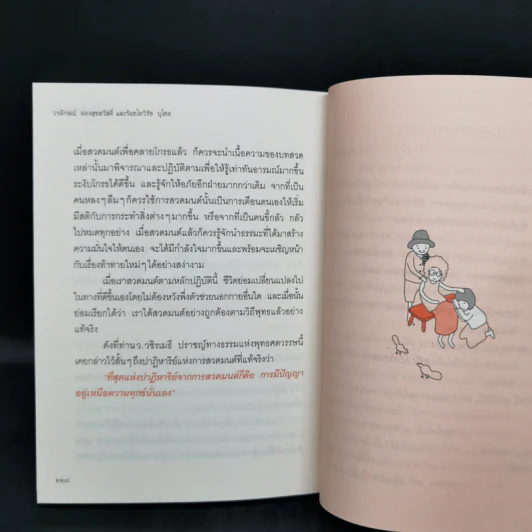 วรลักษณ์ ผ่องสุขสวัสดิ์ และร้อยโทวิรัช นุโยค
เมื่อสวดมนต์เพื่อคลายโกรธแล้ว ก็ควรจะนำเนื้อความของบทสวด
เหล่านั้นมาพิจารณาและปฏิบัติตามเพื่อให้รู้เท่าทันอารมณ์มากขึ้น
ระงับโกรธได้ดีขึ้น และรู้จักให้อภัยอีกฝ่ายมากกว่าเดิม จากที่เป็น
คนหลงๆลืมๆก็ควรใช้การสวดมนต์นั้นเป็นการเตือนตนเองให้เริ่ม
มีสติกับการกระทำสิ่งต่างๆมากขึ้น หรือจากที่เป็นคนขี้กลัว กลัว
ไปหมดทุกอย่าง เมื่อสวดมนต์แล้วก็ควรรู้จักนำธรรมะที่ได้มาสร้าง
ความมั่นใจให้ตนเอง จะได้มีกำลังใจมากขึ้นและพร้อมจะเผชิญหน้า
กับเรื่องท้าทายใหม่ๆได้อย่างสง่างาม
เมื่อเราสวดมนต์ตามหลักปฏิบัตินี้ ชีวิตย่อมเปลี่ยนแปลงไป
ในทางที่ดีขึ้นเองโดยไม่ต้องหวังพึ่งตัวช่วยนอกกายอื่นใด และเมื่อนั้น
ย่อมเรียกได้ว่า เราได้สวดมนต์อย่างถูกต้องตามวิถีพุทธแล้วอย่าง
แท้จริง
ดังที่ท่านว.วชิรเมธี ปราชญ์ทางธรรมแห่งพุทธศตวรรษนี้
เคยกล่าวไว้สั้นๆถึงปาฏิหาริย์แห่งการสวดมนต์ที่แท้จริงว่า
"ที่สุดแห่งปาฏิหาริย์จากการสวดมนต์ก็คือ การมีปัญญา
อยู่เหนือความทุกข์นั่นเอง"